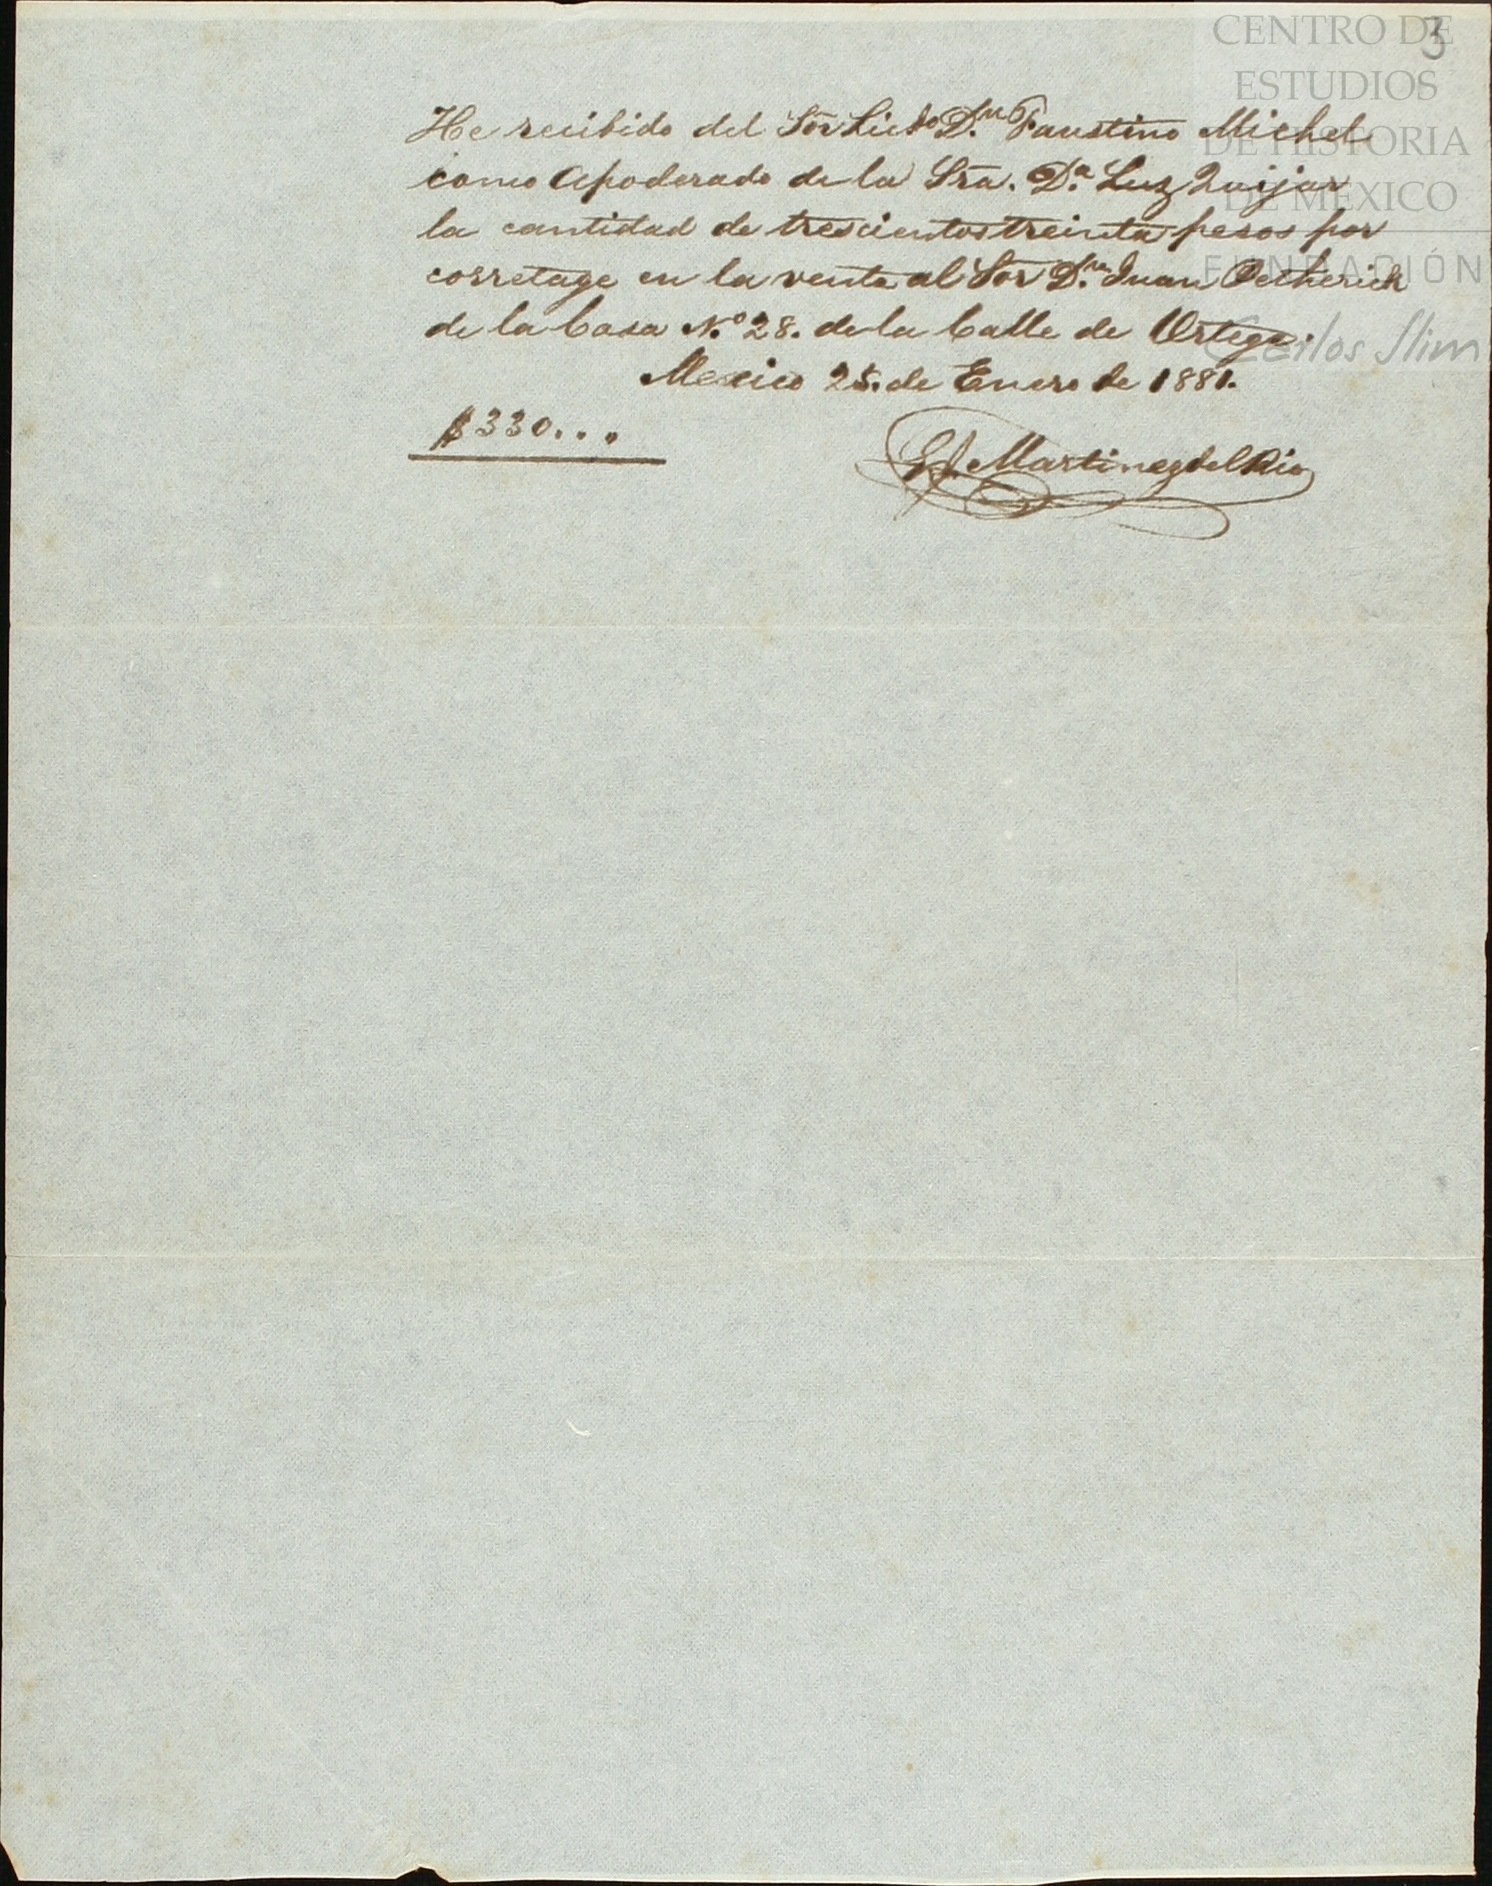 3
CENTRO DE
ESTUDIOS
DE HISTORIA
DE MEXICO
FUNDACIÓN
Carlos Slim
He recibido del Sõr Licdo D.n Faustino Michel
como Apoderado de la Sra. D.a Luz Quijar
la cantidad de trescientos treinta pesos por
corretage en la venta al Sõr D.n Juan Petherick
de la Casa N.o 28. de la Calle de Ortega.
Mexico 25. de Enero de 1881.
$330...
Martinez del Rio